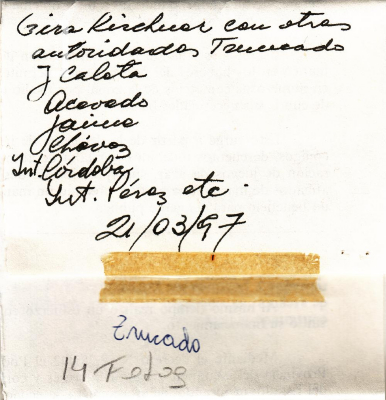 Gira Kirchner con otras
autoridades Truncado
y Caleta
Acevedo
Jaime
Chávez
Int. Córdoba
Int. Pérez etc.
21/03/97
Truncado
14 Fotos